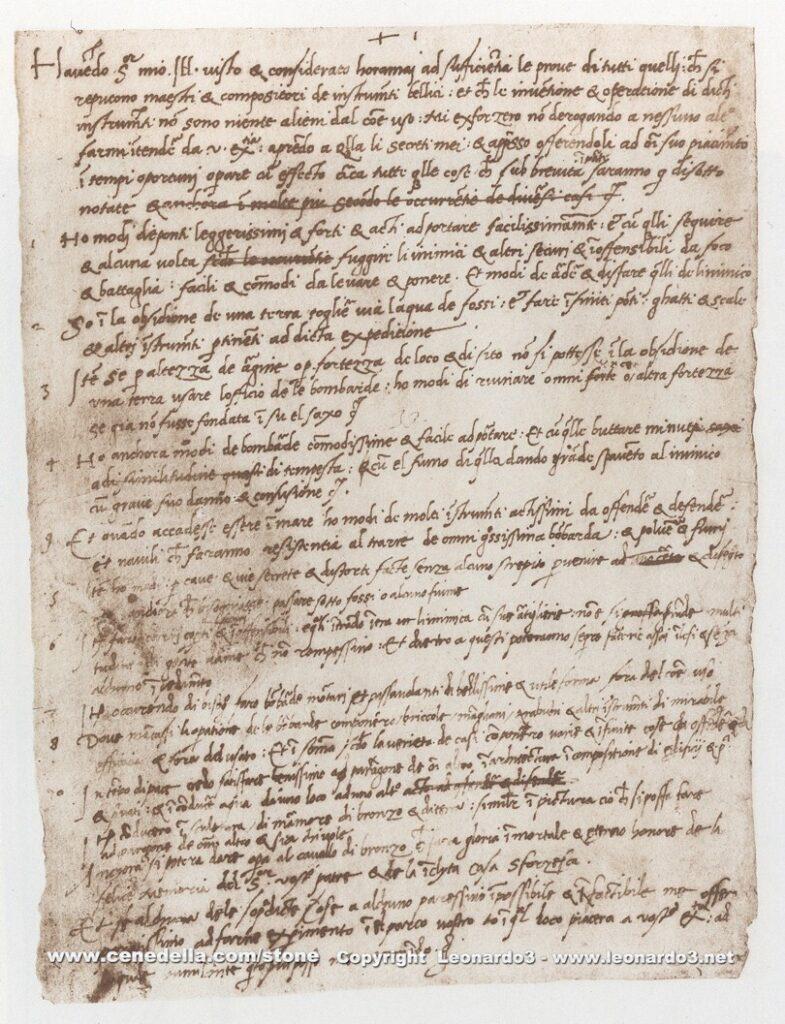 Havēdo S.or mio Ill. visto & considerato horamai ad sufficientia le prove di tutti quelli: ch̄ si
reputono maestri & compositori de instrumēti bellici: et ch̄ le inventione & operatione di dicti
instrumēti nō sono niente alieni dal cōe uso: Mi exforzero nō derogando a nessuno altro
farmi intendere da v. ex.tia: aprēdo a q̄lla li secreti mei: & appsso offerendoli ad ōi suo piacimto
ī tempi oportuni operare cū effecto circa tutte q̄lle cose ch̄ sub brevità saranno q̄ disotto
notate & anchora ī molte piu secōdo le occurrentie de diversi casi
1 Ho modi de ponti leggerissimi & forti & acti ad portare facilissimamte: et cū q̄lli seguire
& alcuna volta fuggire li inimici & altri securi & īoffensibili da foco
& battaglia: facili & cōmodi da levare & ponere. Et modi de arder & disfare q̄lli de linimico
2 So ī la obsidione de una terra toglier via laqua de fossi: et fare īfiniti pōti ghatti & scale
& altri īstrumēti ptinenti ad dicta expeditione
3 Itē se p altezza de argine o p fortezza de loco & di sito nō si pottesse ī la obsidione de
una terra usare lofficio de le bombarde: ho modi di ruinare omni forte o altra fortezza
se gia nō fusse fondata ī su el saxo
4 Ho anchora modi de bombarde cōmodissime & facile ad portare: Et cū q̄lle buttare minuti saxi
adi similitudine quasi di tempesta: & cū el fumo di q̄lla dando grāde spavēto al inimico
cū grave suo danno & confusione
9 Et quādo accadesse essere ī mare ho modi de molti īstrumti actissimi da offender & defender:
et navili ch̄ faranno resistentia al trarre de omni grossissima bōbarda: & polver & fumi
5 Itē ho modi p cave & vie secrete & distorte facte senza alcuno strepito pervenire ad & disegto
anchora ch̄ bisognasse passare sotto fossi o alcuno fiume
6 Itē faro carri coperti & īoffensibili: e q̄li ītrādo ītra li inimica cū sue artiglierie nō e si multi
tudine di gente darme ch̄ nō rompessino: Et dietro a questi poteranno
alchuno īpedimēto
7 Itē occurrendo di bisogno faro bōbarde mortari et passavolanti di bellissime & utile forme fora del cōe uso
8 Dove mācassi la operatione de le bōbarde componero briccole māghani trabuchi & altri īstrumti di mirabile
efficacia & fora del usato: Et ī sōma la varieta de casi cōponero varie & īfinite cose da offender
10 In tēpo di pace credo satisfare benissimo ad paragone de ōi altro ī architectura ī compositione di edificii & pu
& privati: & ī cōducer aqua da uno loco ad uno altro
Itē conducero ī sculptura di marmore di bronzo & di terra: similr ī pictura cio ch̄ si possa fare
ad paragone de omni altro & sia chi vole
Ancora si potera dare opa al cavallo di bronzo gloria īmortale & etterno honore de la
felice memoria del S.or vostro patre & de la īclyta casa Sforzesca.
Et se alchuna de le sopradicte cose a alchuno paressino īpossibile & īfactibile me offer
issimo ad farne expimento ī el parco vostro o ī q̄l loco piacera a vostr Ex.tia: ad
www.cenedella.com/stone Copyright Leonardo3 - www.leonardo3.net